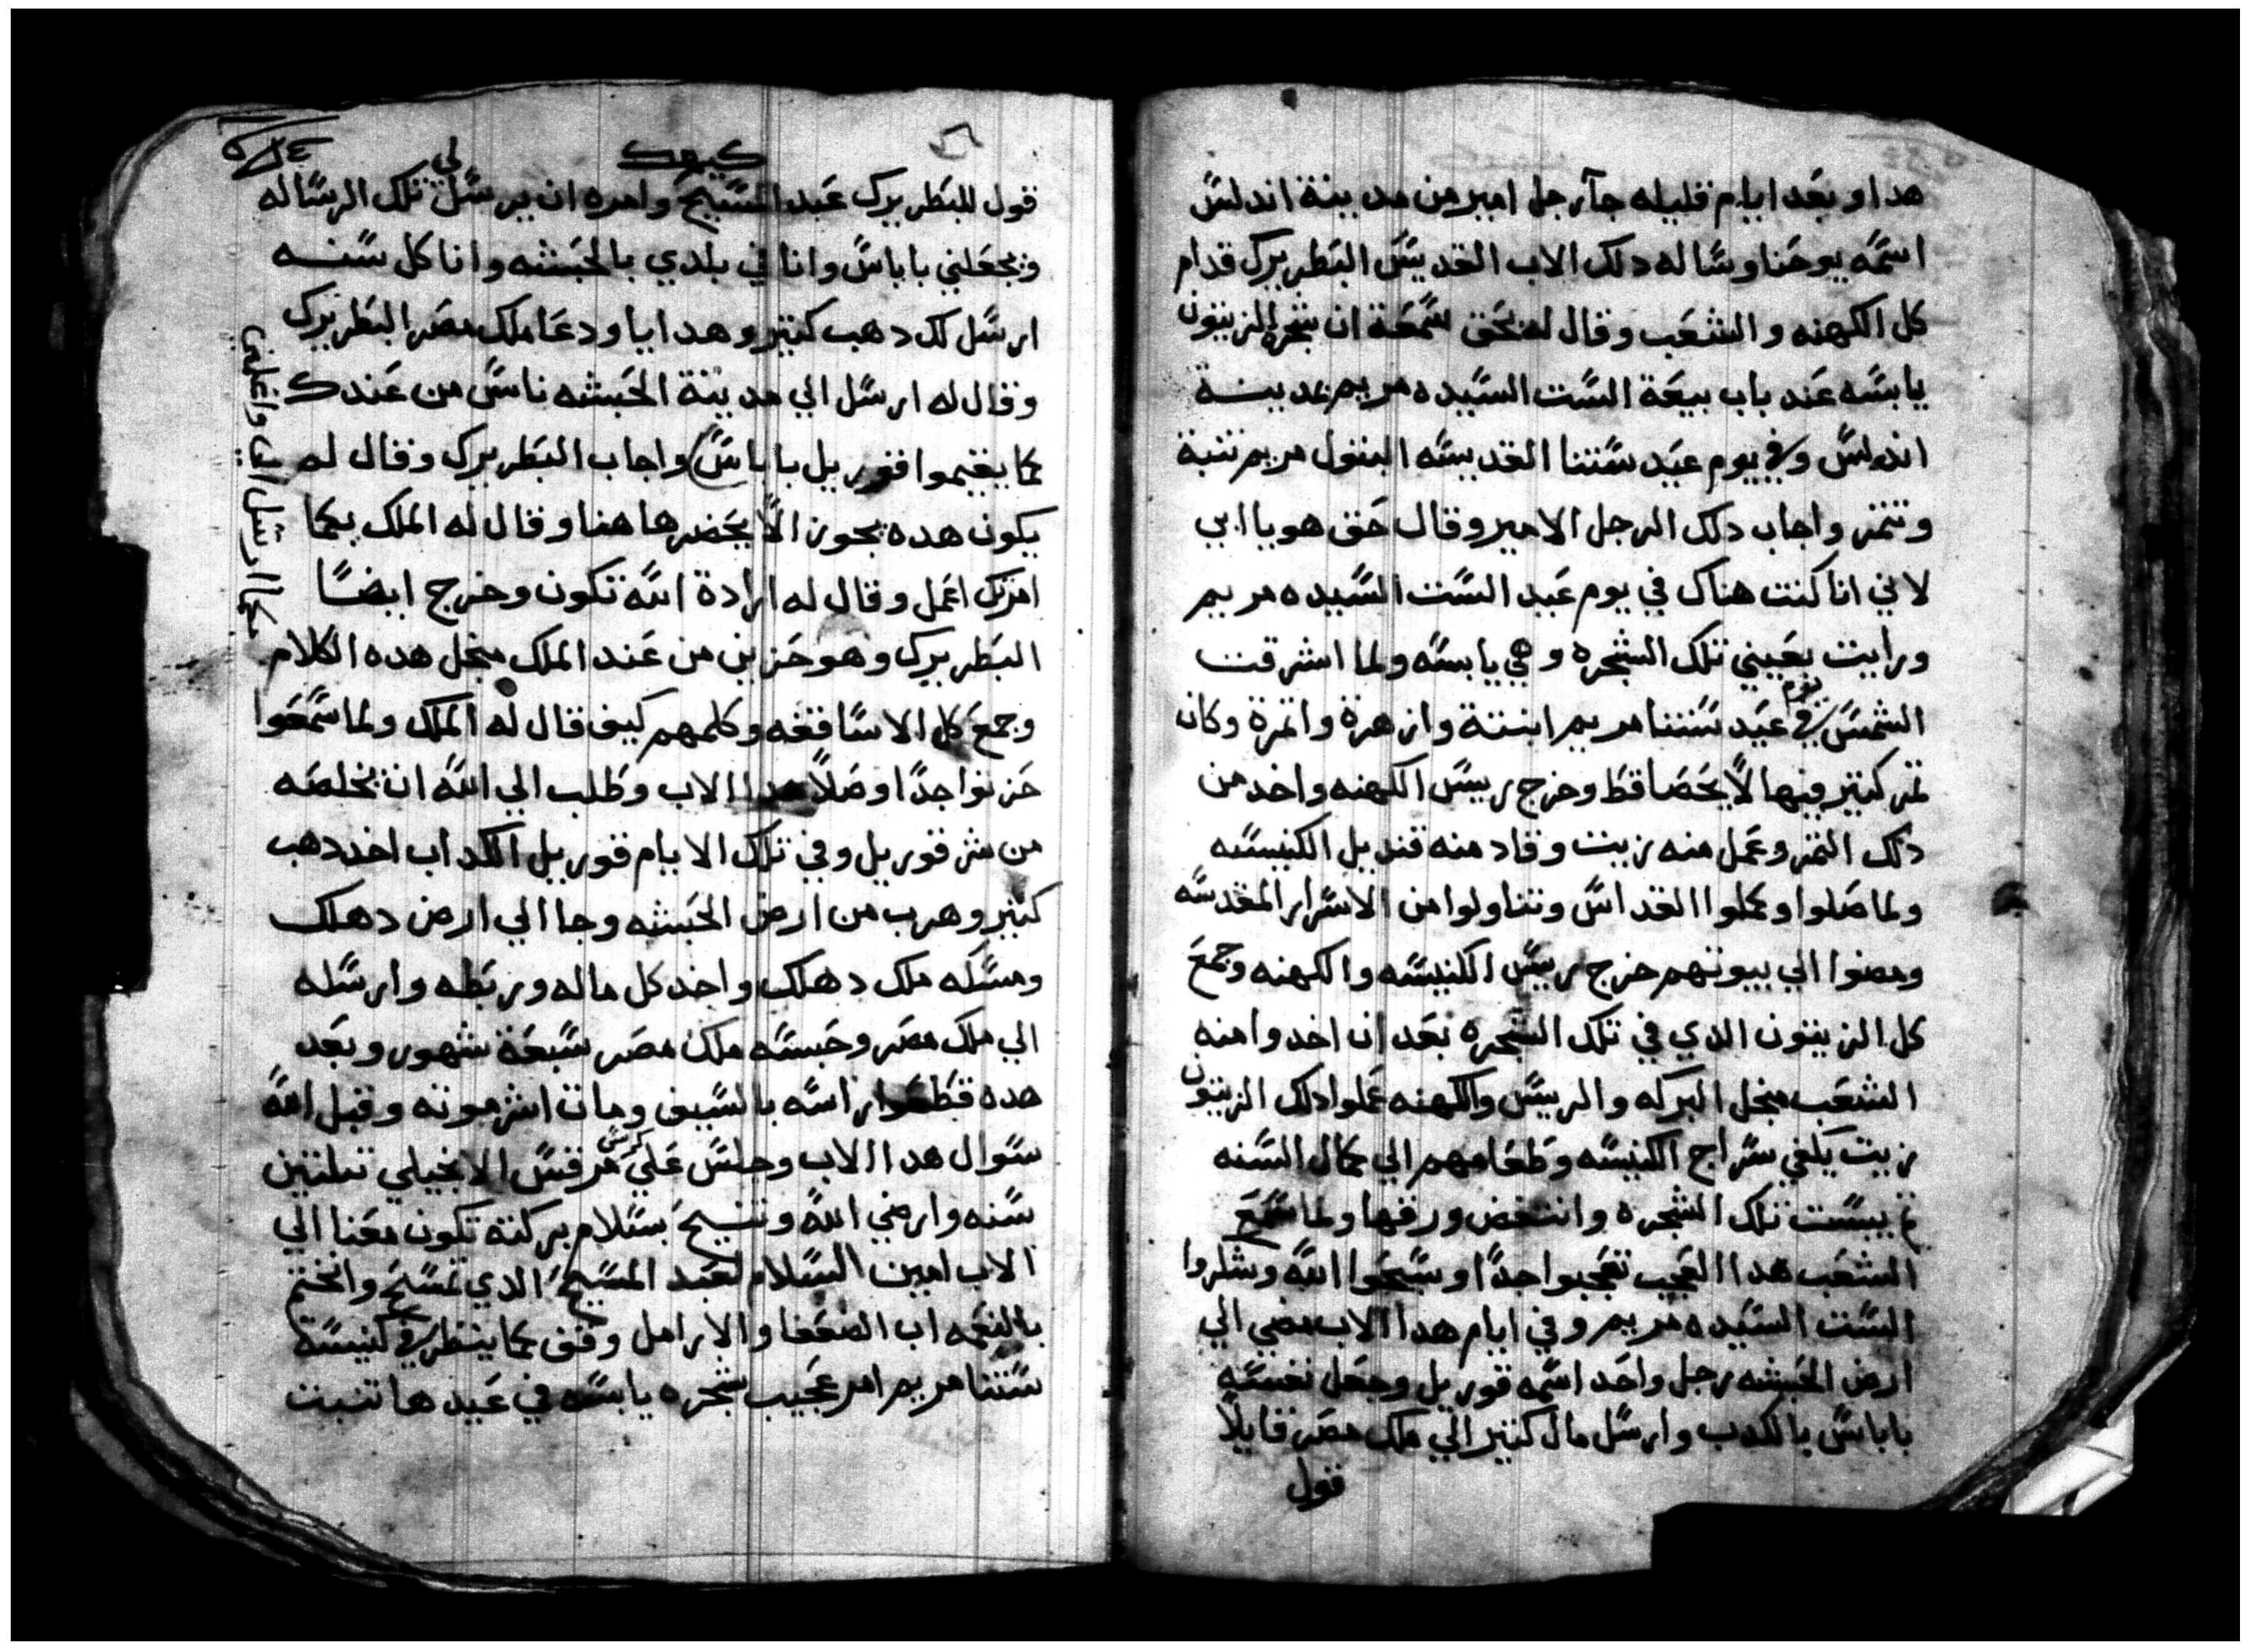 هدا وبعد ايام قليله جآ رجل امير من مدينة اندلس
اسمه يوحنا وساله دلك الاب القديس البطريرك قدام
كل الكهنه والشعب وقال له بحق سمعة ان شجرة الزيتون
يابسه عند باب بيعة الست السيده مريم بمدينة
اندلس وفي يوم عيد ستنا القديسه البتول مريم تنبة
وتتمر واجاب دلك الرجل الامير وقال حق هو يا ابي
لاني انا كنت هناك في يوم عيد الست السيده مريم
ورايت بعيني تلك الشجره وهي يابسه ولما اشرقت
الشمس في يوم عيد ستنا مريم ابنتة وازهرة واتمرة وكان
تمر كتير فيها لا يحصا قط وخرج رييس الكهنه واخد من
دلك التمر وعمل منه زيت وقاد منه قنديل الكنيسه
ولما صلوا وعملوا القداس وتناولوا من الاسرار المقدسه
ومضوا الي بيوتهم خرج رييس الكنيسه والكهنه وجمع
كل الزيتون الدي في تلك الشجره بعد ان اخدوا منه
الشعب منجل البركه والرييس والكهنه عملوا دلك الزيتون
زيت يكفي سراج الكنيسه وطعامهم الي كمال السنه
تم يبست تلك الشجره وانتفض ورقها ولما سمع
الشعب هدا العجيب تعجبوا جدا وسبحوا الله وشكروا
الست السيده مريم وفي ايام هدا الاب مضي الي
ارض الحبشه رجل واحد اسمه قوريل وجعل نفسه
باباس بالكدب وارسل مال كتير الي ملك مصر قايلا
قول
كيهك
قول للبطريرك عبد المسيح وامره ان يرسل لي تلك الرساله
ويجعلني باباس وانا في بلدي بالحبشه وانا كل سنه
ارسل لك دهب كتير وهدايا ودعا ملك مصر البطريرك
وقال له ارسل الي مدينة الحبشه ناس من عندك
كما يقيموا قوريل باباس واجاب البطريرك وقال له
يكون هده يجوز الا يحضر ها هنا وقال له الملك بمكا
امرتك اعمل وقال له ارادة الله تكون وخرج ايضا
البطريرك وهو حزين من عند الملك منجل هده الكلام
وجمع كل الاساقفه وكلمهم كيف قال له الملك ولما سمعوا
حزنوا جدا وصلا هدا الاب وطلب الي الله ان يخلصه
من شر قوريل وفي تلك الايام قوريل الكداب اخد دهب
كتير وهرب من ارض الحبشه وجا الي ارض دهلك
ومسكه ملك دهلك واخد كل ماله وربطه وارسله
الي ملك مصر وحبسه ملك مصر سبعة شهور وبعد
هده قطعوا راسه بالسيف ومات اشر موته وقبل الله
سوال هدا الاب وجلس علي كرسي مرقس الانجيلي تلتين
سنه وارضي الله وتنيح بسلام بركته تكون معنا الي
الابد امين السلام لعبد المسيح الدي تمسح وانختم
بالنعمه اب الضعفا والارامل وقف كما ينظر في كنيسة
ستنا مريم امر عجيب شجره يابسه في عيدها تنبت